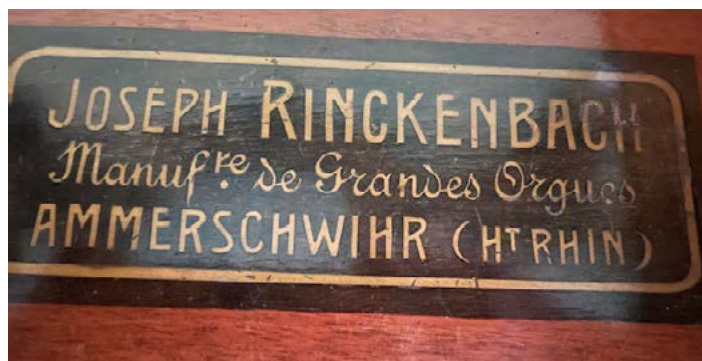 JOSEPH RINCKENBACH
Manuf.re de Grandes Orgues
AMMERSCHWIHR (HT RHIN)